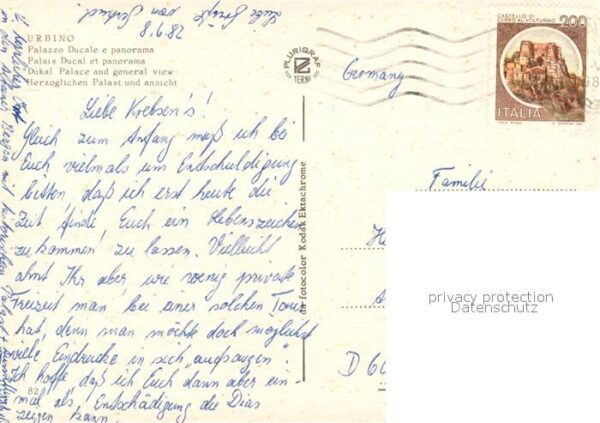 URBINO
Palazzo Ducale e panorama
Palais Ducal et panorama
Dukal Palace and general view
Herzoglichen Palast und ansicht
8.6.82
Liebe Krebsen's!
Gleich zum Anfang muß ich bei
Euch vielmals um Entschuldigung
bitten, daß ich erst heute die
Zeit finde, Euch ein Lebenszeichen
zukommen zu lassen. Vielleicht
ahnt Ihr aber, wie wenig private
Freizeit man bei einer solchen Tour
hat, denn man möchte doch möglichst
viele Eindrücke in sich "aufsaugen".
Ich hoffe, daß ich Euch dann aber ein-
mal als Entschädigung die Dias
zeigen kann.
Liebe Grüße
von
82
PLURIGRAF
TERNI
da fotocolor Kodak Ektachrome
CASTELLO DI
CERRO AL VOLTURNO
200
ITALIA
Germany
Familie
D 60
privacy protection
Datenschutz